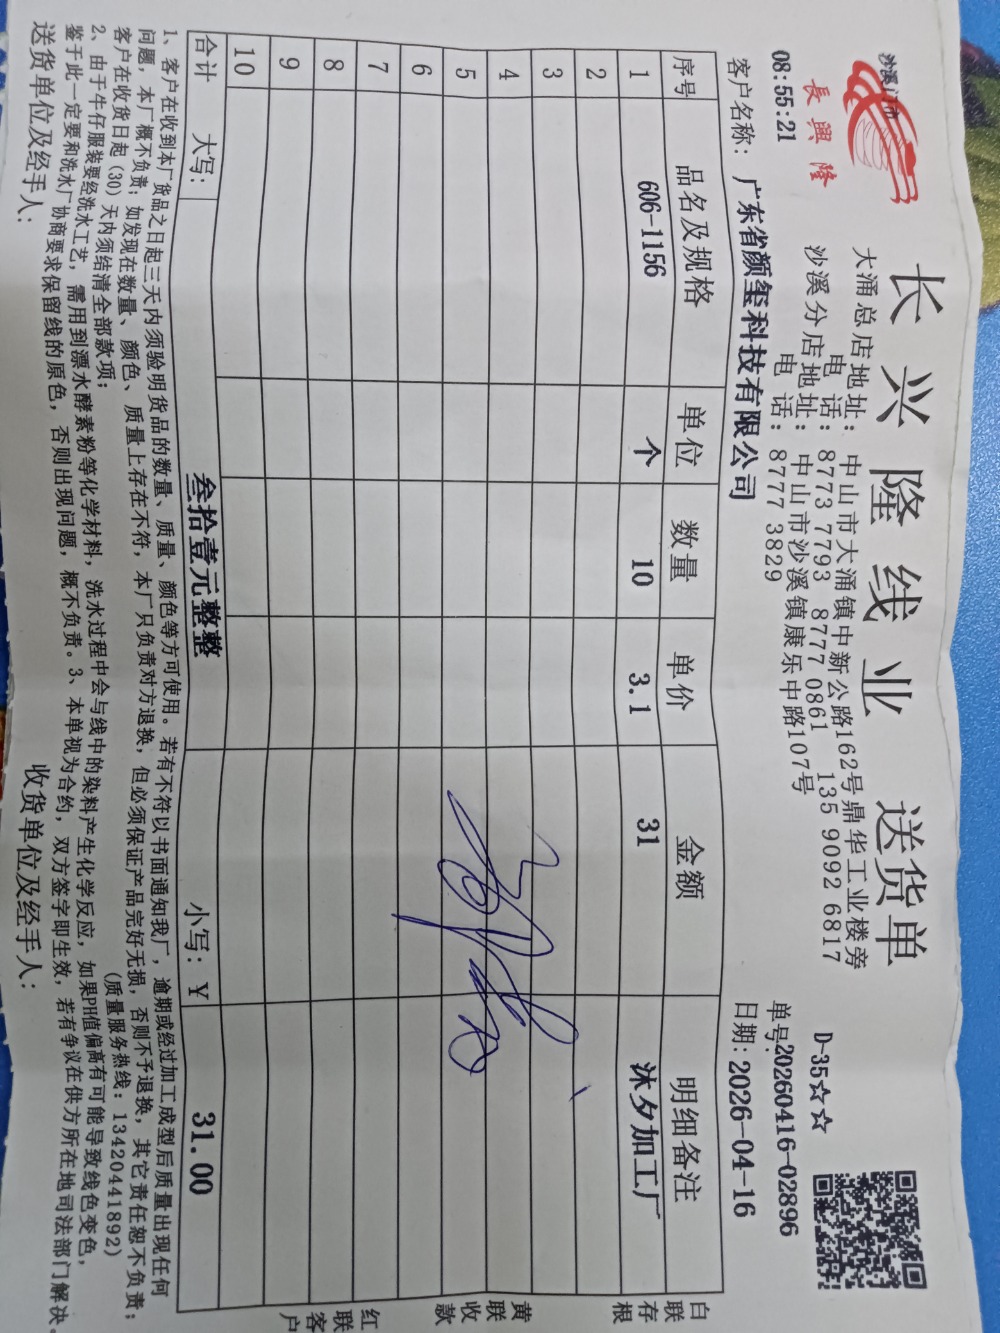 长兴隆线业 送货单
沙溪门市
長興隆
大涌总店地址：中山市大涌镇中新公路162号鼎华工业楼旁
电话：8773 7793 8777 0861 135 9092 6817
沙溪分店地址：中山市沙溪镇康乐中路107号
电话：8777 3829
D-35☆☆
08:55:21
单号:20260416-02896
客户名称：广东省颜玺科技有限公司
日期：2026-04-16
序号 品名及规格 单位 数量 单价 金额 明细备注
1 606-1156 个 10 3.1 31 沐夕加工厂
2
3
4
5
6
7
8
9
10
合计 大写： 叁拾壹元整整 小写：￥ 31.00
白联存根
黄联收款
红联客户
1、客户在收到本厂货品之日起三天内须验明货品的数量、质量、颜色等方可使用。若有不符以书面通知我厂，逾期或经过加工成型后质量出现任何
问题，本厂概不负责；如发现在数量、颜色、质量上存在不符，本厂只负责对方退换，但必须保证产品完好无损，否则不予退换，其它责任恕不负责；
客户在收货日起（30）天内须结清全部款项；
(质量服务热线：13420441892)
2、由于牛仔服装要经洗水工艺，需用到漂水酵素粉等化学材料，洗水过程中会与线中的染料产生化学反应，如果PH值偏高有可能导致线色变色，
鉴于此一定要和洗水厂协商要求保留线的原色，否则出现问题，概不负责。3、本单视为合约，双方签字即生效，若有争议在供方所在地司法部门解决。
送货单位及经手人： 收货单位及经手人：